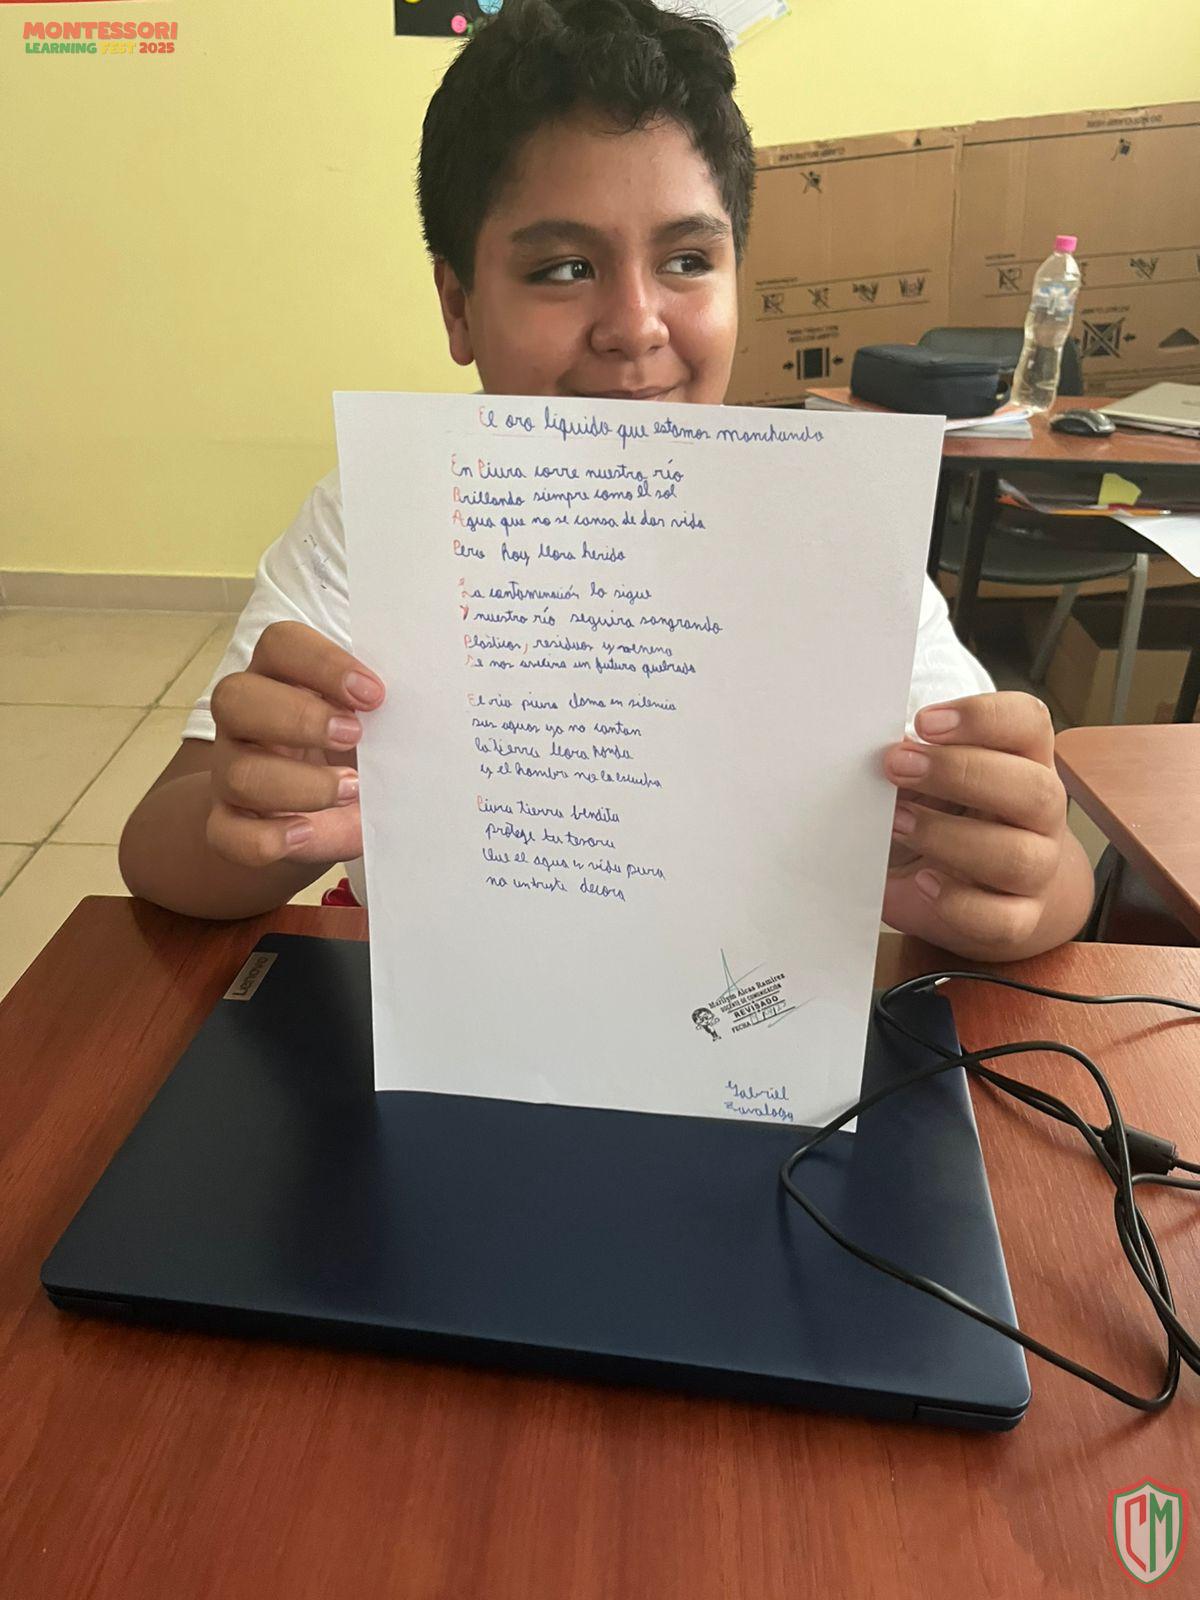 MONTESSORI
LEARNING FEST 2025
El oro líquido que estamos manchando
En Piura corre nuestro río
Brillando siempre como el sol
Agua que no se cansa de dar vida
Pero hoy llora herido
La contaminación lo sigue
Y nuestro río seguira sangrando
Plásticos, residuos y veneno
Se nos avecina un futuro quebrado
El río piura clama en silencio
sus aguas ya no cantan
la tierra llora honda
y el hombre no la escucha
Piura tierra bendita
protege tu tesoro
Que el agua es vida pura
no un triste decora
Marilyn Alcas Ramirez
DOCENTE DE COMUNICACIÓN
REVISADO
FECHA
Gabriel
Zavaloga
Lenovo
CM